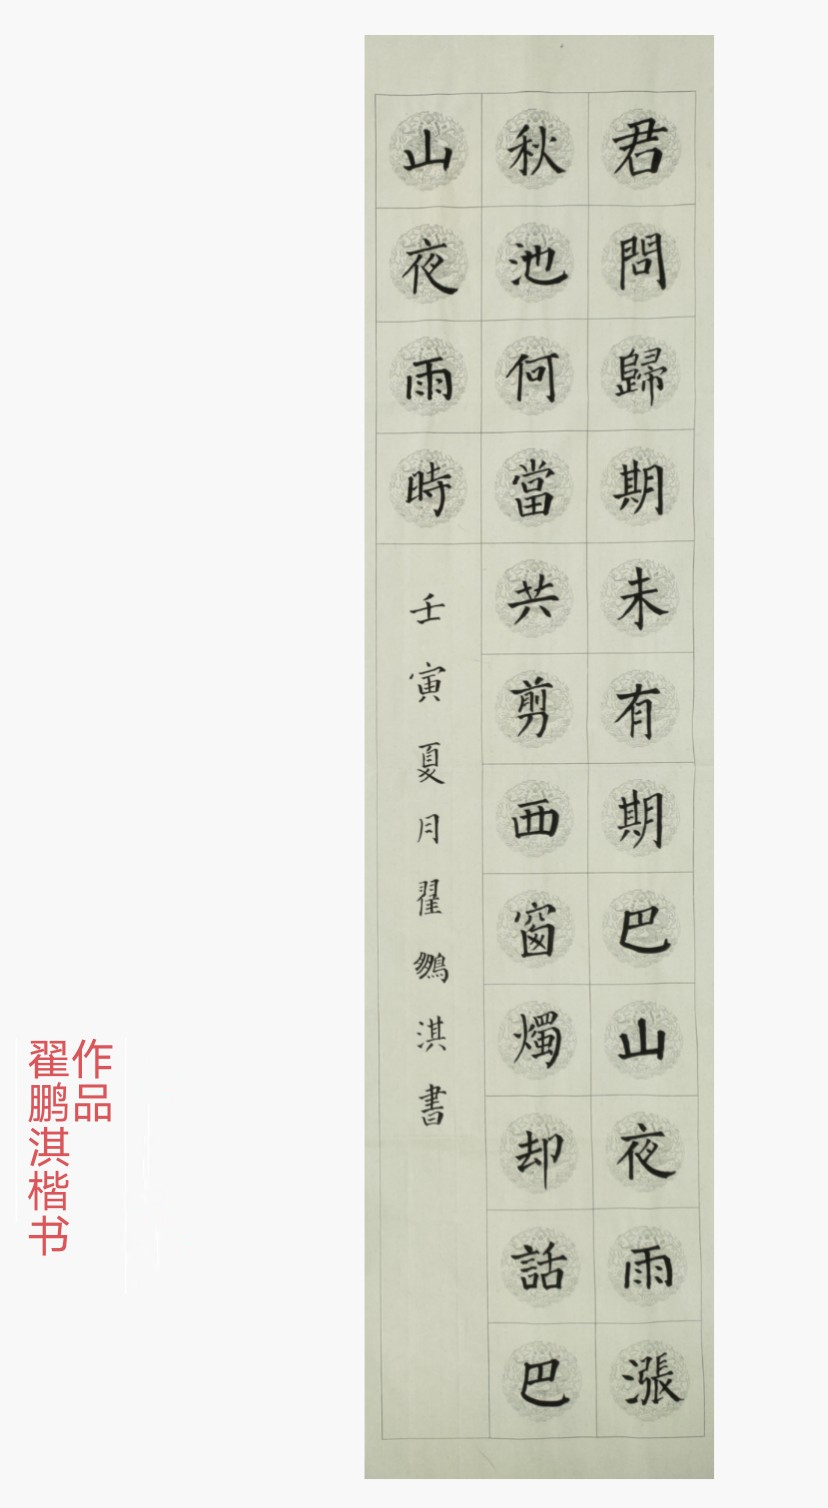 君問歸期未有期巴山夜雨漲
秋池何當共剪西窗燭却話巴
山夜雨時
壬寅夏月翟鵬淇書
翟鹏淇楷书
作品